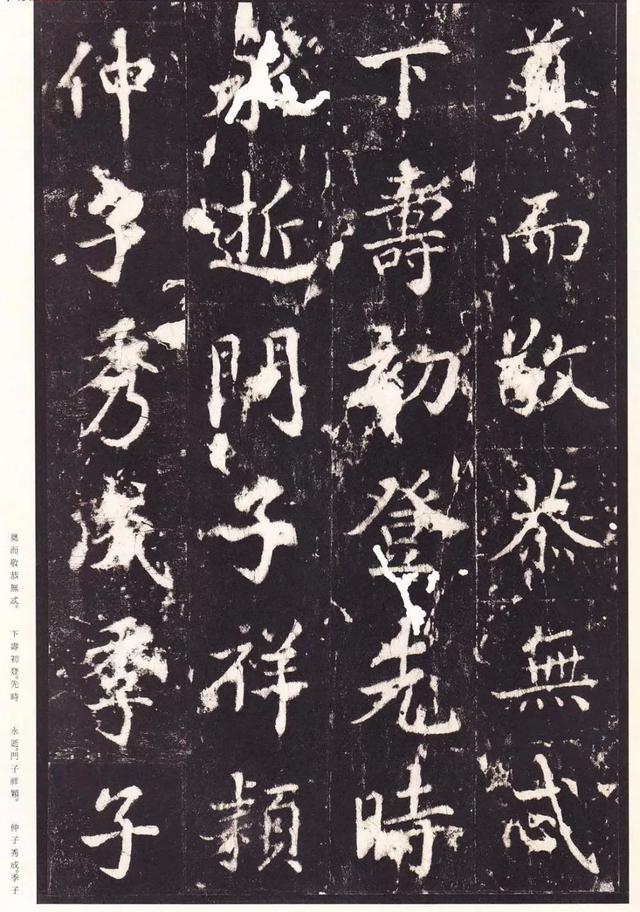 奠而敬恭無忒
下壽初登先時
永逝門子祥顥
仲子秀成季子
奠而敬恭無忒。　下壽初登。先時　永逝。門子祥顥。　仲子秀成。季子